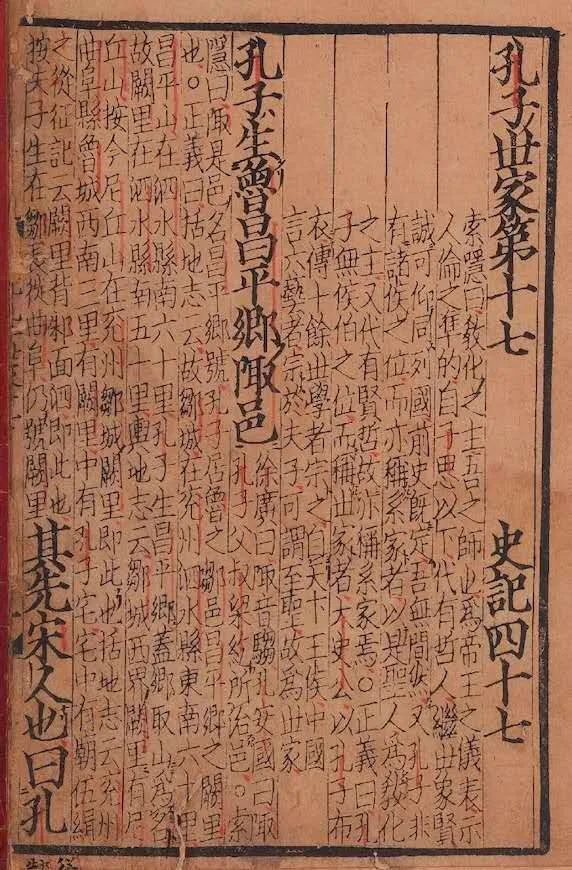 孔子世家第十七 史記四十七
索隱曰教化之主吾之師也爲帝王之儀表示
人倫之準的自子思以下代有哲人繼世象賢
誠可仰同列國前史旣定吾無間然又孔子非
有諸侯之位而亦稱系家者以是聖人爲教化
之主又代有賢哲故亦稱系家焉○正義曰孔
子無侯伯之位而稱世家者大史公以孔子布
衣傳十餘世學者宗之自天下王侯中國
言六藝者宗於夫子可謂至聖故爲世家
孔子生魯昌平鄉陬邑
徐廣曰陬音騶孔安國曰陬
孔子父叔梁紇所治邑○索
隱曰陬是邑名昌平鄉號孔子居魯之鄒邑昌平鄉之闕里
也○正義曰括地志云故鄒城在兗州泗水縣東南六十里
昌平山在泗水縣南六十里孔子生昌平鄉蓋鄉取山爲名
故闕里在泗水縣南五十里輿地志云鄒城西界闕里有尼
丘山按今尼丘山在兗州鄒城闕里即此也括地志云兗州
曲阜縣魯城西南三里有闕里中有孔子宅宅中有廟伍緝
之從征記云闕里背邾面泗即此也
按夫子生在鄒長徙曲阜仍號闕里
其先宋人也曰孔